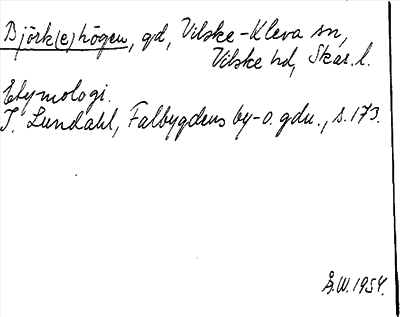 Björk(e)högen, gd, Vilske-Kleva sn,
Vilske hd, Skar. l.
Etymologi.
I. Lundahl, Falbygdens by-o. gdn., s. 173.
Å.W. 1954.